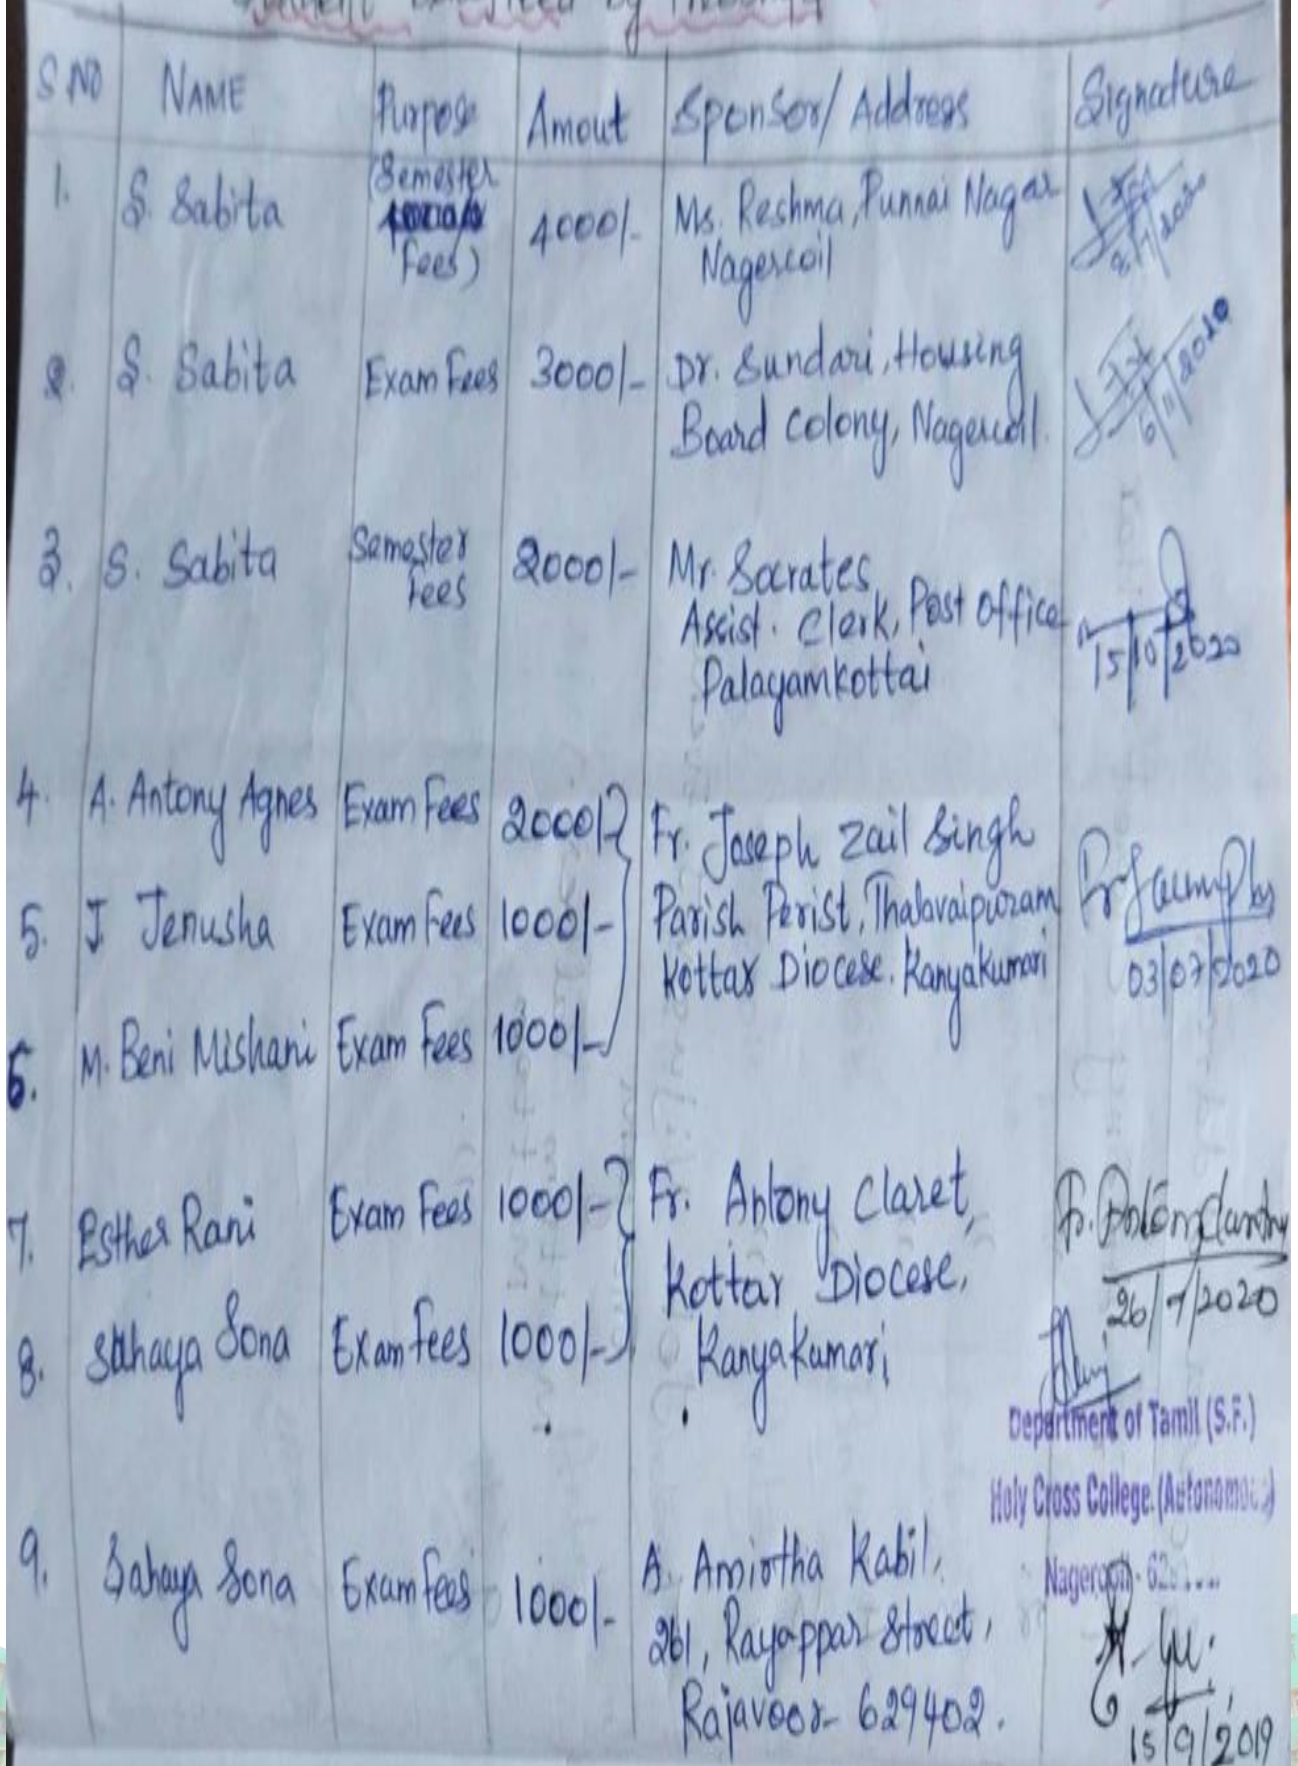 by
S NO NAME Purpose Amout Sponsor/ Address Signature
1. S. Sabita (Semester Fees) 4000/- Ms. Reshma, Punnai Nagar
Nagercoil
2. S. Sabita Exam Fees 3000/- Dr. Sundari, Housing
Board Colony, Nagercoil.
6/11/2020
3. S. Sabita Semester Fees 2000/- Mr. Socrates,
Assist. Clerk, Post Office
Palayamkottai
15/10/2020
4. A. Antony Agnes Exam Fees 2000/- Fr. Joseph Zail Singh
5. J Jenusha Exam Fees 1000/- Parish Perist, Thalavaipuram
Kottar Diocese. Kanyakumari
03/07/2020
6. M. Beni Mishani Exam Fees 1000/-
7. Esther Rani Exam Fees 1000/- Fr. Antony Claret,
Kottar Diocese,
26/7/2020
8. Sahaya Sona Exam Fees 1000/- Kanyakumari
Department of Tamil (S.F.)
Holy Cross College (Autonomous)
Nagercoil -
9. Sahaya Sona Exam Fees 1000/- A. Amirtha Kabil,
261, Rayappar Street,
Rajavoor- 629402.
15/9/2019